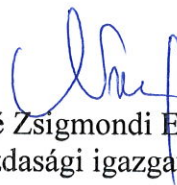 é Zsigmondi E
dasági igazga